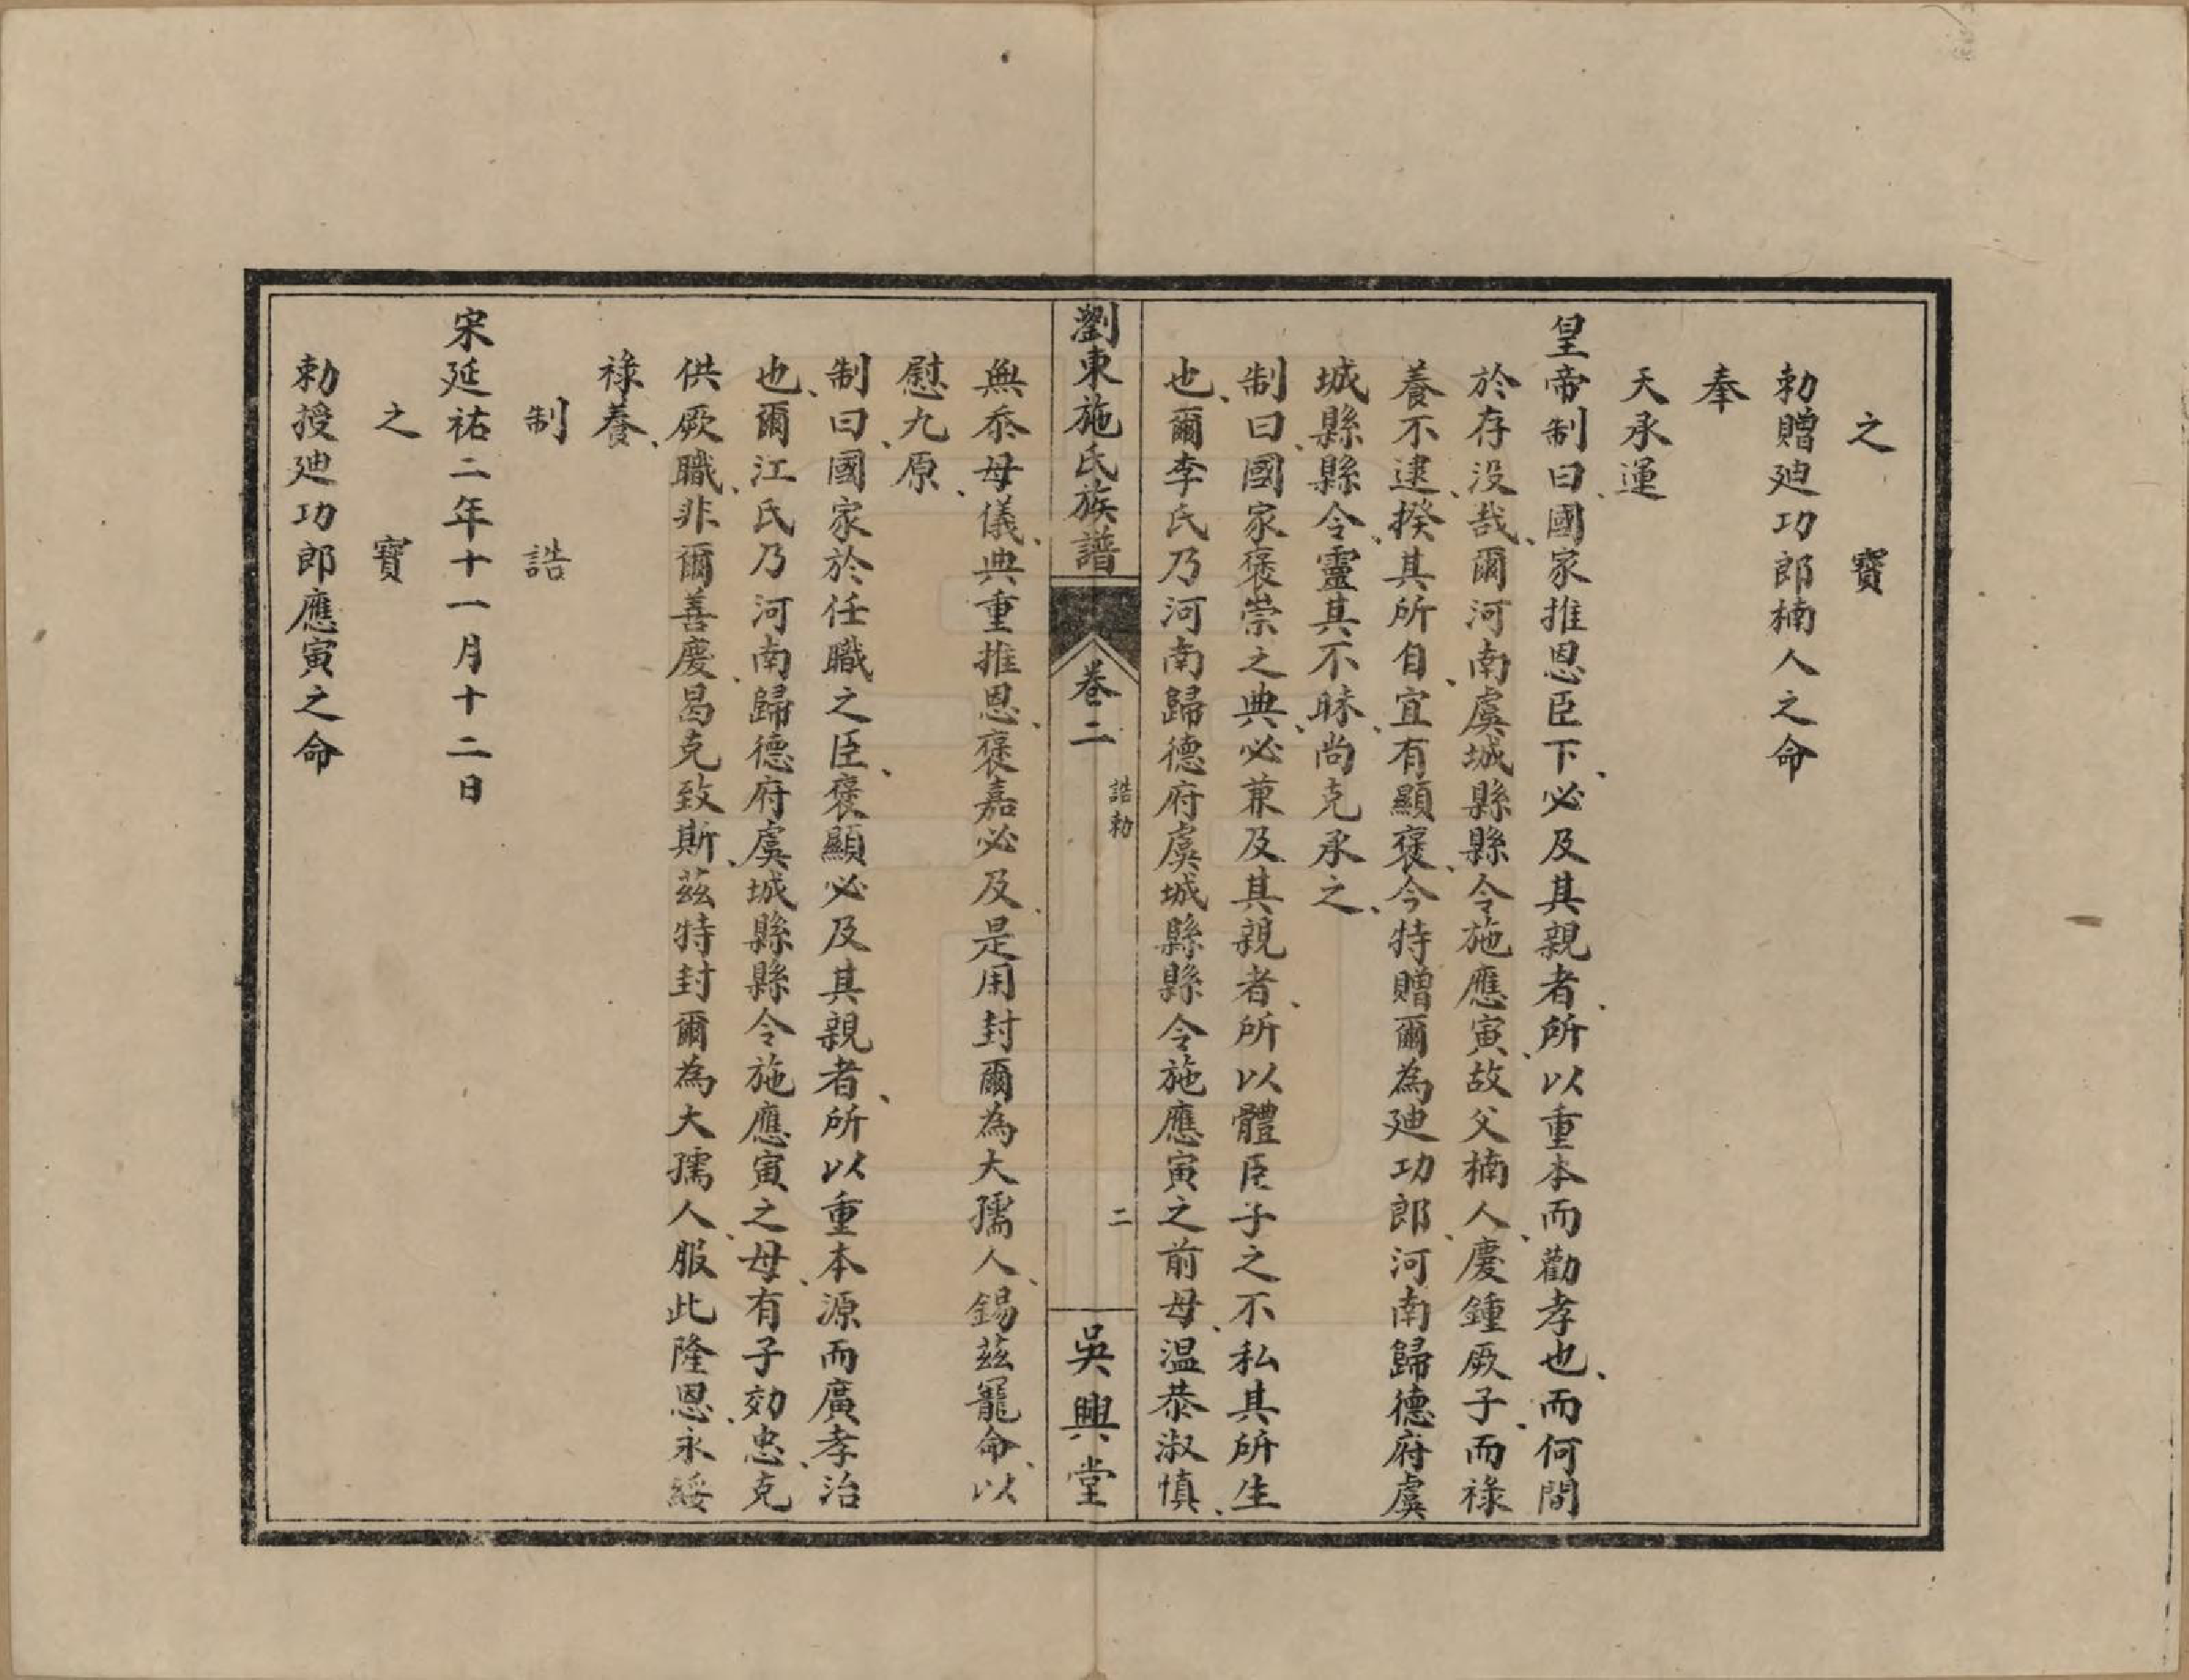 之寶
勅贈廸功郎楠人之命
奉
天承運
皇帝制曰、國家推恩臣下、必及其親者、所以重本而勸孝也、而何間
於存没哉、爾河南虞城縣縣令施應寅、故父楠人、慶鍾厥子、而祿
養不逮、揆其所自、宜有顯褒、今特贈爾為廸功郎、河南歸德府虞
城縣縣令、靈其不昧、尚克承之、
制曰、國家褒崇之典、必兼及其親者、所以體臣子之不私其所生
也、爾李氏乃河南歸德府虞城縣縣令施應寅之前母、温恭淑慎、
瀏東施氏族譜
卷二
誥勅
二
吳興堂
無忝母儀、典重推恩、褒嘉必及、是用封爾為大孺人、錫茲寵命、以
慰九原、
制曰、國家於任職之臣、褒顯必及其親者、所以重本源而廣孝治
也、爾江氏乃河南歸德府虞城縣縣令施應寅之母、有子効忠、克
供厥職、非爾善慶、曷克致斯、茲特封爾為大孺人、服此隆恩、永綏
祿養、
制誥
宋延祐二年十一月十二日
之寶
勅授廸功郎應寅之命